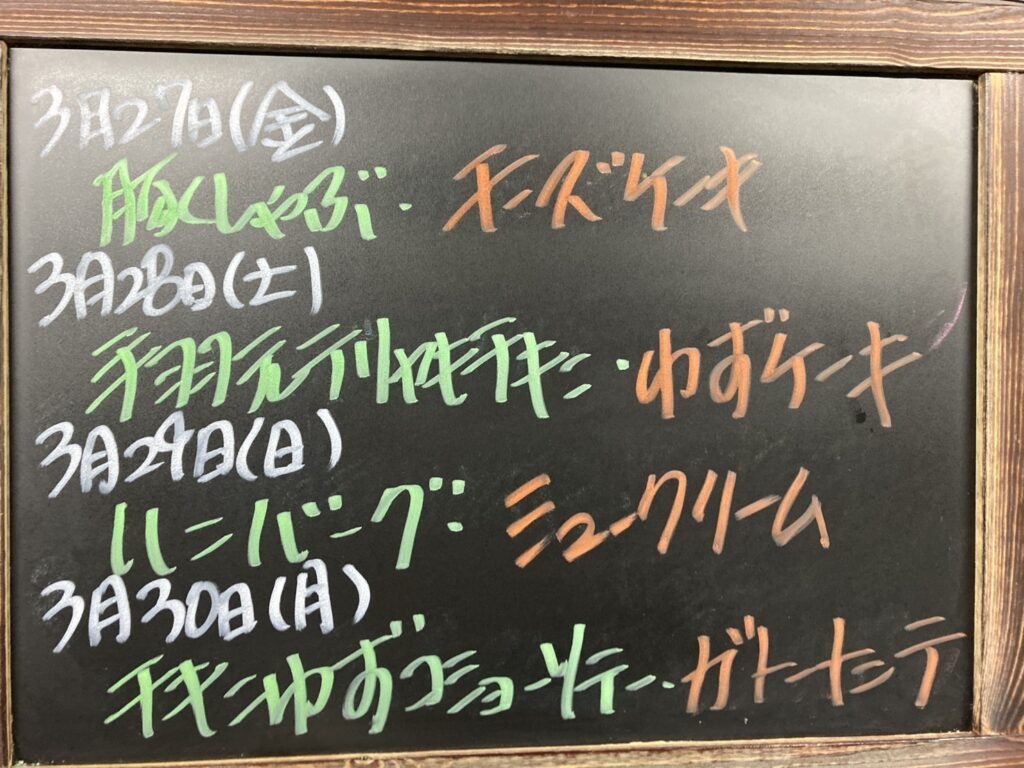 3月27日(金)
豚しゃぶ・チーズケーキ
3月28日(土)
チキン・ゆずケーキ
3月29日(日)
ハンバーグ・シュークリーム
3月30日(月)
チキンゆずコショーソテー・ガトーナンテ